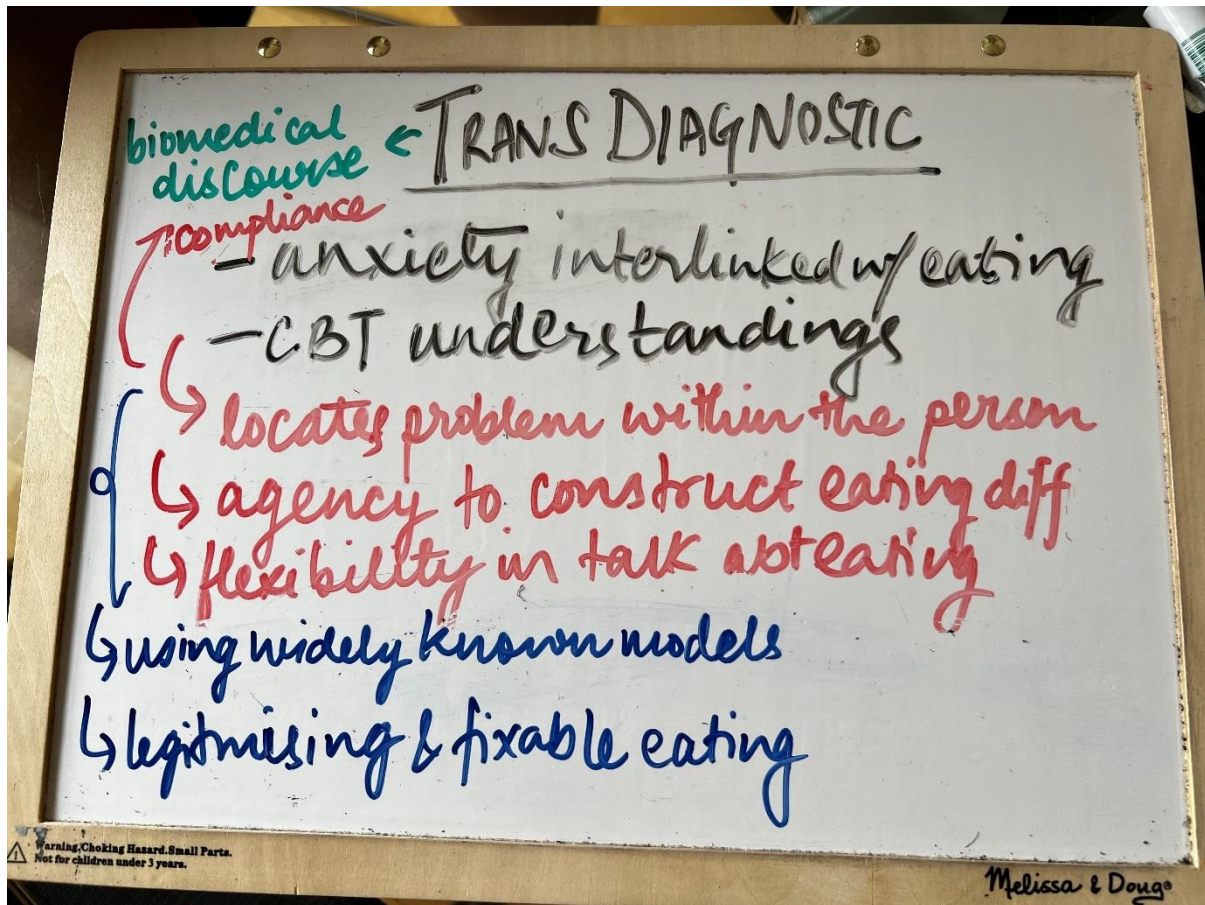 biomedical
discourse ← TRANSDIAGNOSTIC
compliance
- anxiety interlinked w/ eating
- CBT understandings
↳ locates problem within the person
↳ agency to construct eating diff
↳ flexibility in talk abt eating
↳ using widely known models
↳ legitmising & fixable eating
Warning,Choking Hazard.Small Parts.
Not for children under 3 years.
Melissa & Doug®